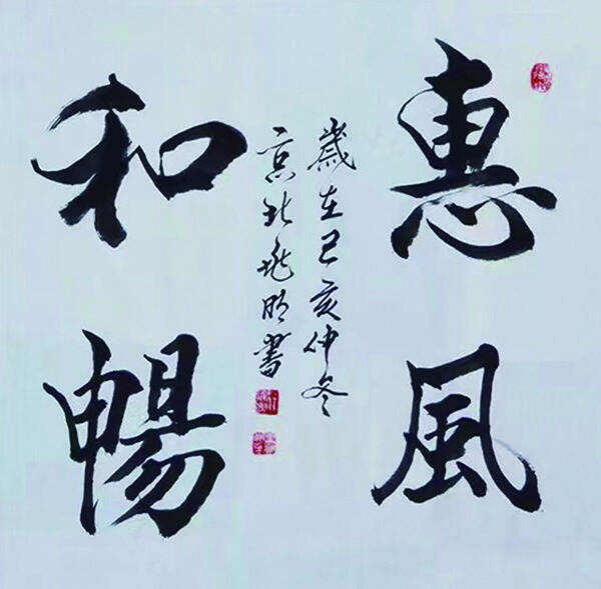 惠風
和暢
歲在己亥仲冬
京北飛明書